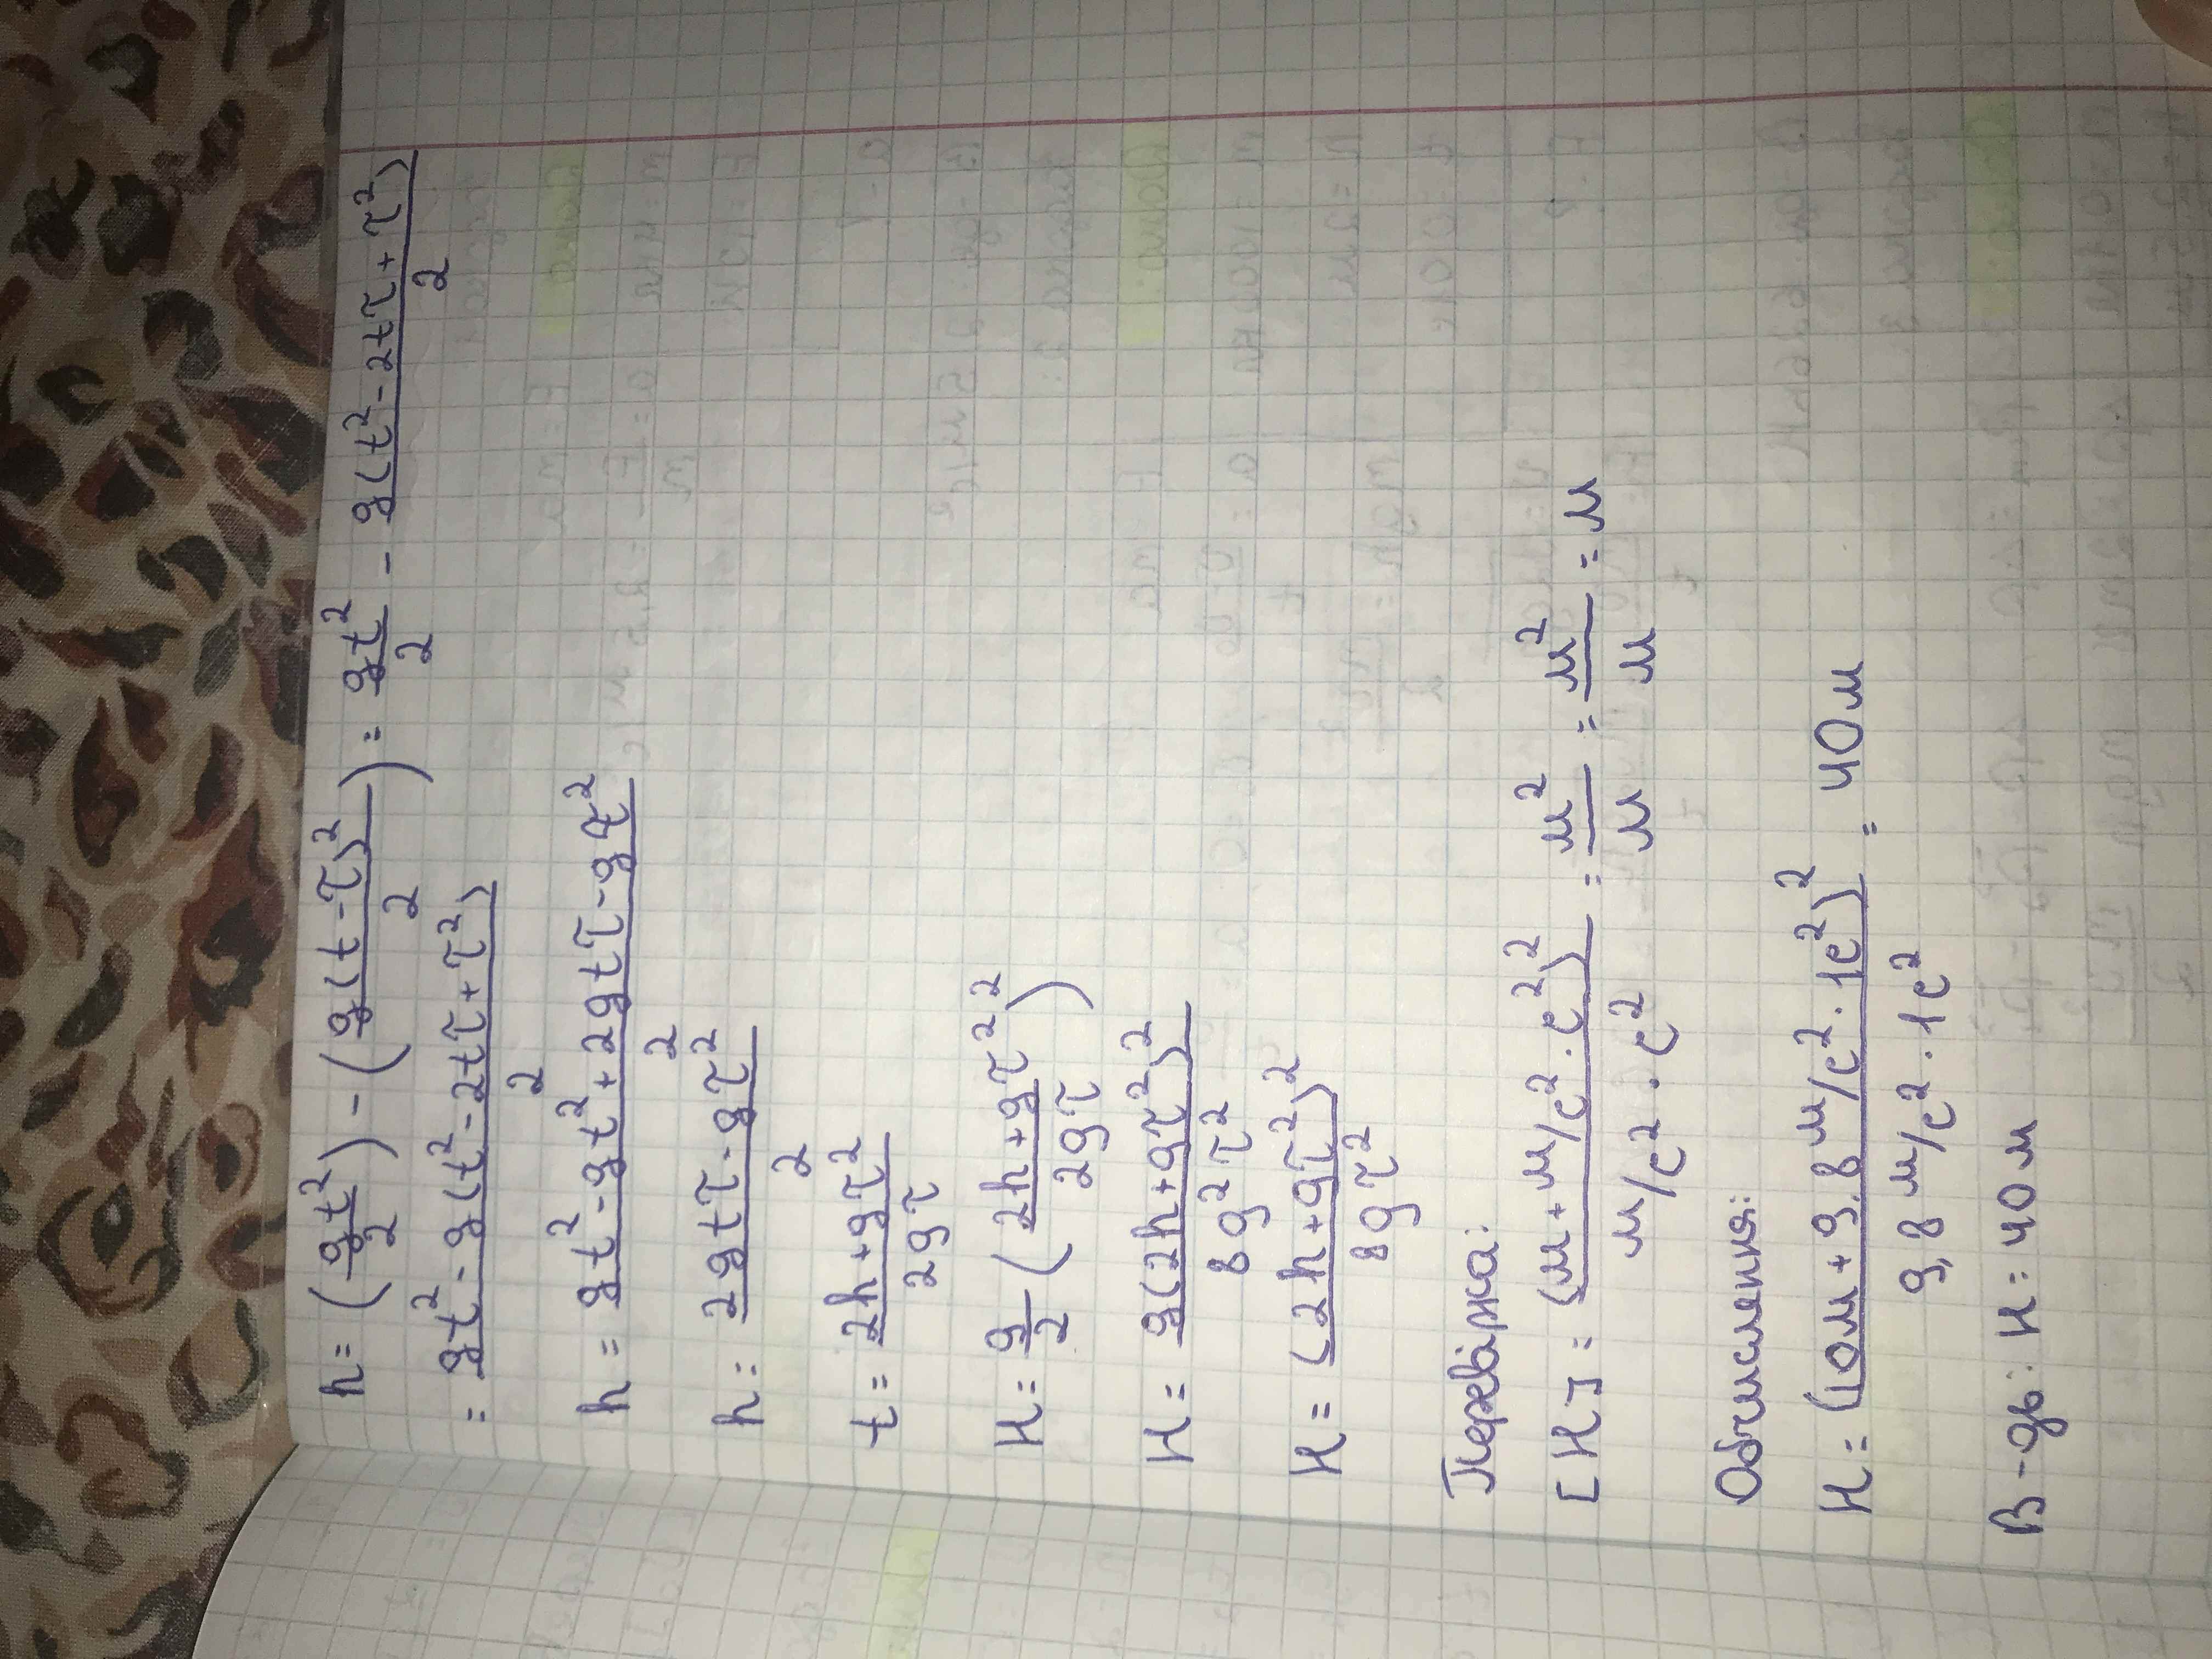 h = (gt²/2) - (g(t-τ)²/2) = gt²/2 - g(t²-2tτ+τ²)/2
= gt² - g(t²-2tτ+τ²)/2
h = gt²-gt²+2gtτ-gτ²/2
h = 2gtτ-gτ²/2
t = 2h+gτ²/2gτ
H = g/2 - (2h+gτ²/2gτ)²
H = g(2h+gτ²)²/8g²τ²
H = (2h+gτ²)²/8gτ²
Перевірка:
[H] = (м+м/с²·с²)²/м/с²·с² = м²/м = м²/м = м
Обчислення:
H = (10м+9.8м/с²·1с²)²/9,8м/с²·1с² = 40м
В-дь: H = 40м